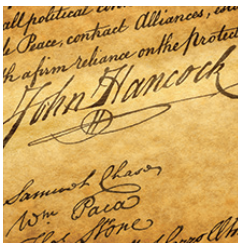 all political con
le Peace, contract Alliances, esta
h a firm reliance on the Protect
John Hancock
Samuel Chase
Wm Paca
Thos Stone